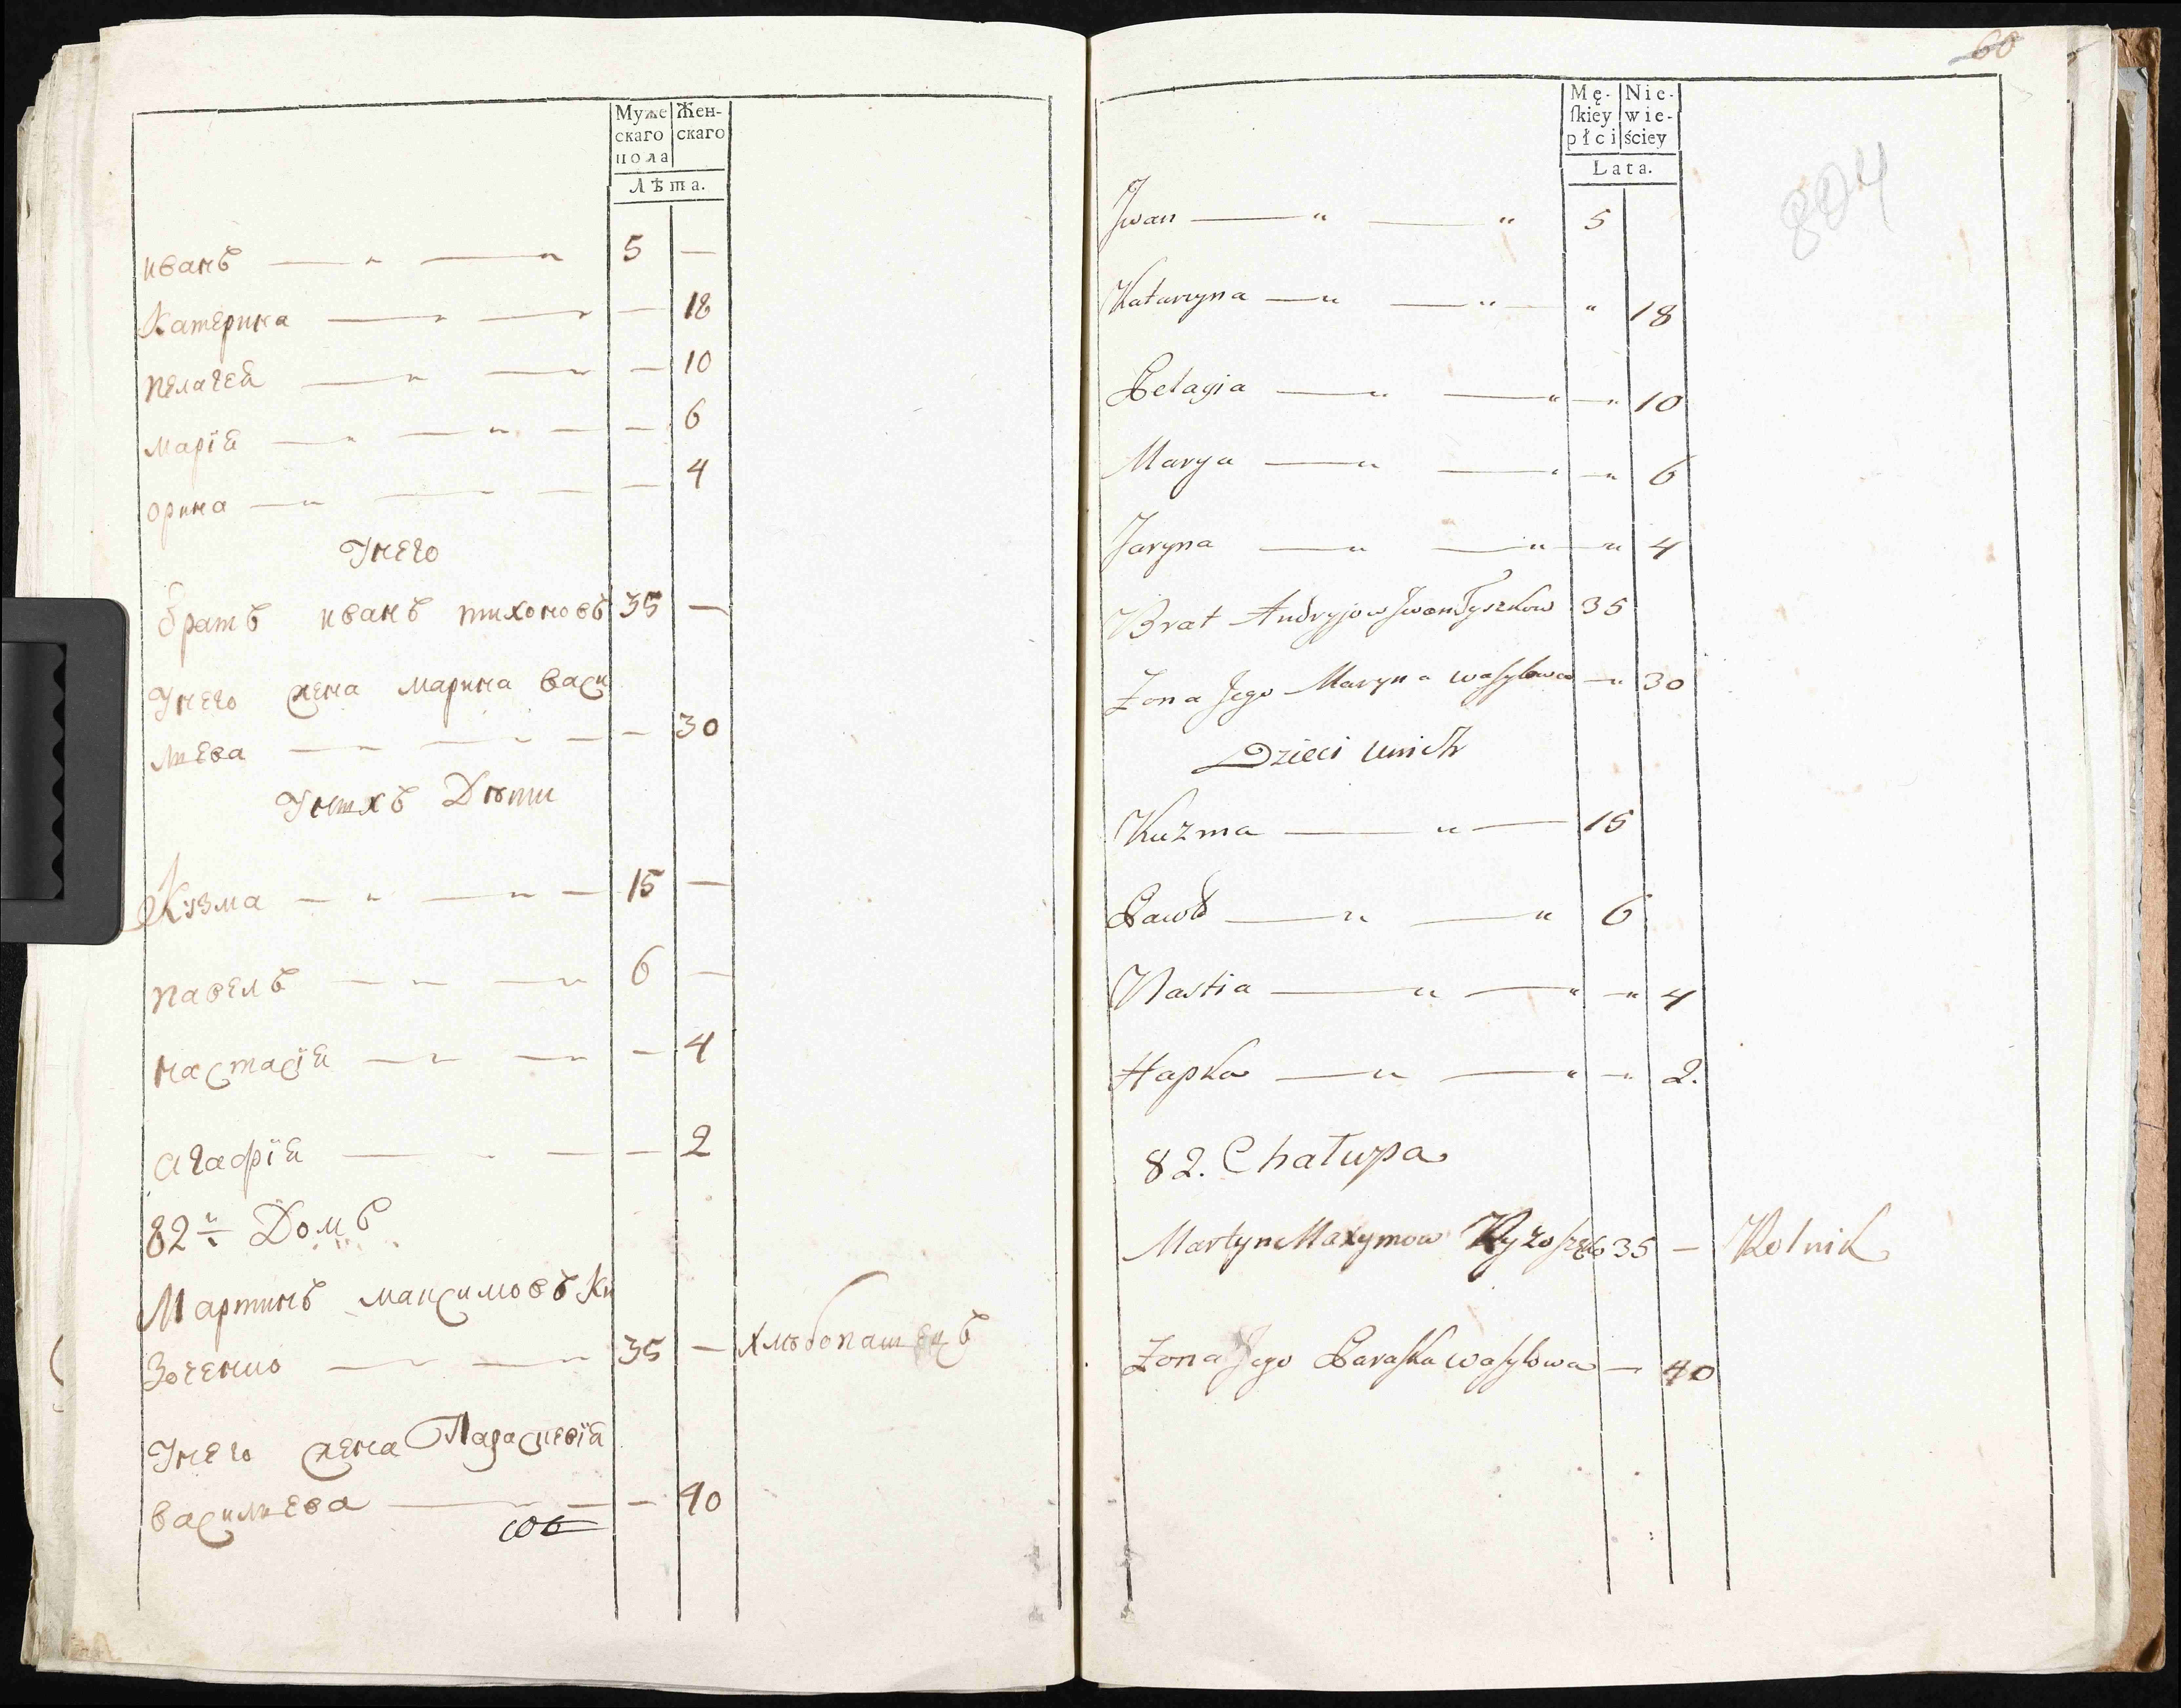 Муже Жен-
скаго скаго
пола
Лѣта.
иванъ 5 —
Катерина — 18
пелагея — 10
марїя — 6
орина — 4
У него
братъ иванъ тихоновъ 35 —
У него жена марина васи
лиева — 30
У нихъ Дѣти
Кузма 15 —
павелъ 6 —
настасїя — 4
агафїя — 2
82й Домъ
Мартинъ максимовъ Ки
зоченко 35 — хлѣбопашецъ
У него жена Параскевїя
василиева — 40
60
Mę- Nie-
ſkiey wie-
płci ściey
Lata.
804
Jwan 5
Katarzyna " 18
Pelagia " 10
Marya " 6
Jaryna " 4
Brat Andryjow Jwan Tyszkow 35
Zona Jego Maryna wasylowa " 30
Dzieci unich
Kuzma 15
Pawło 6
Nastia " 4
Hapka " 2.
82. Chałupa
Martyn Maxymow 35 — Rolnik
Zona Jego Paraska wasylowa — 40